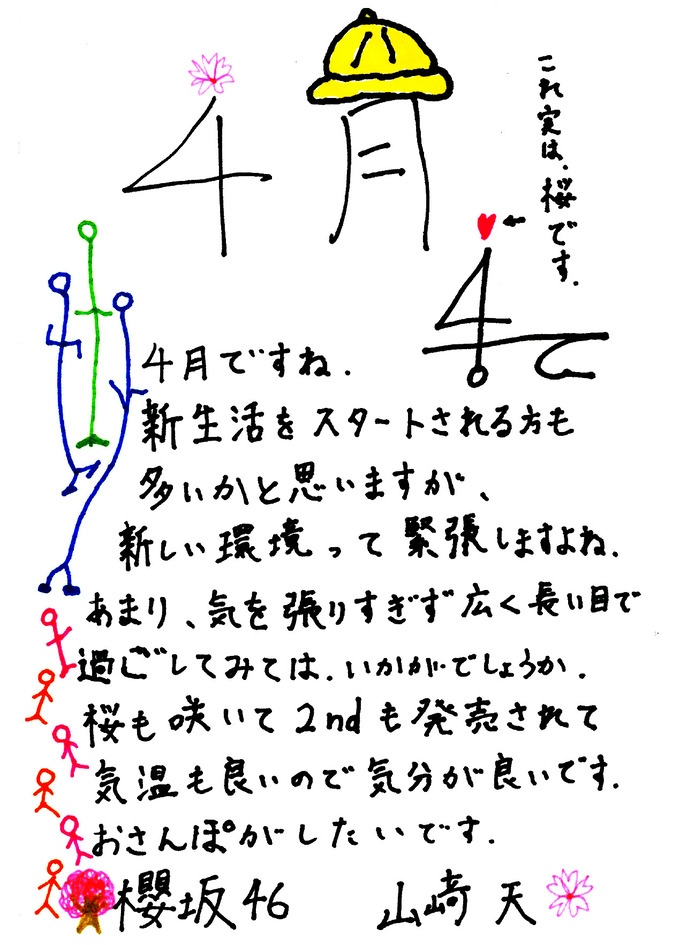 4月
これ実は、桜です.
4月ですね.
新生活をスタートされる方も
多いかと思いますが、
新しい環境って緊張しますよね.
あまり、気を張りすぎず広く長い目で
過ごしてみては.いかがでしょうか.
桜も咲いて2ndも発売されて
気温も良いので気分が良いです.
おさんぽがしたいです.
櫻坂46 山﨑天